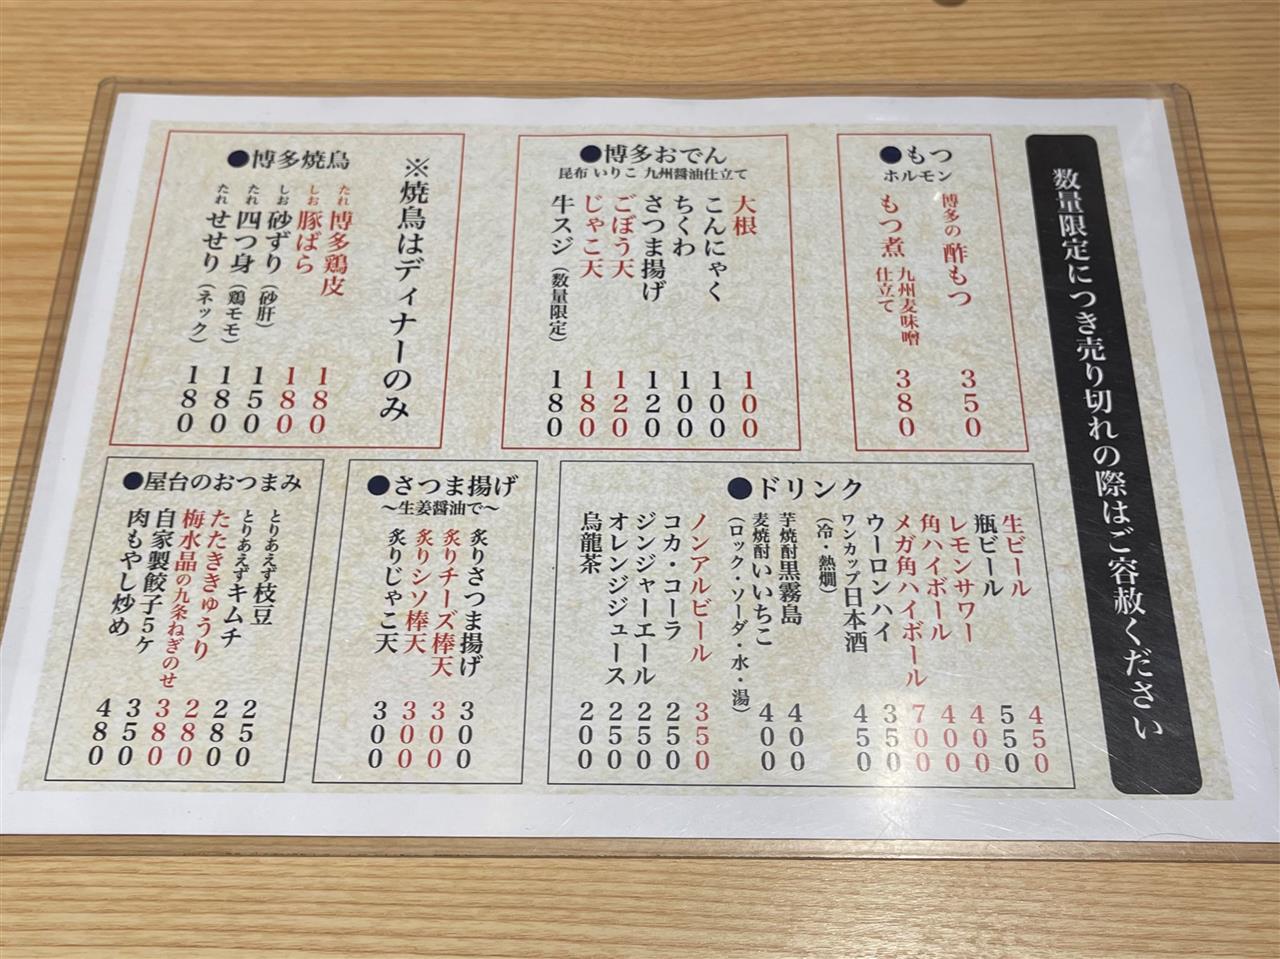 数量限定につき売り切れの際はご容赦ください
●もつ
ホルモン
博多の 酢もつ 350
もつ煮 九州麦味噌仕立て 380
●博多おでん
昆布 いりこ 九州醤油仕立て
大根 100
こんにゃく 100
ちくわ 100
さつま揚げ 120
ごぼう天 120
じゃこ天 180
牛スジ (数量限定) 180
●博多焼鳥
※焼鳥はディナーのみ
たれ 博多鶏皮 180
しお 豚ばら 180
しお 砂ずり (砂肝) 150
たれ 四つ身 (鶏モモ) 180
たれ せせり (ネック) 180
●ドリンク
生ビール 450
瓶ビール 550
レモンサワー 400
角ハイボール 400
メガ角ハイボール 700
ウーロンハイ 350
ワンカップ日本酒 450
(冷・熱燗)
芋焼酎黒霧島 400
麦焼酎いいちこ 400
(ロック・ソーダ・水・湯)
ノンアルビール 350
コカ・コーラ 250
ジンジャーエール 250
オレンジジュース 250
烏龍茶 200
●さつま揚げ
〜生姜醤油で〜
炙りさつま揚げ 300
炙りチーズ棒天 300
炙りシソ棒天 300
炙りじゃこ天 300
●屋台のおつまみ
とりあえず枝豆 250
とりあえずキムチ 280
たたききゅうり 280
梅水晶の九条ねぎのせ 380
自家製餃子5ヶ 350
肉もやし炒め 480